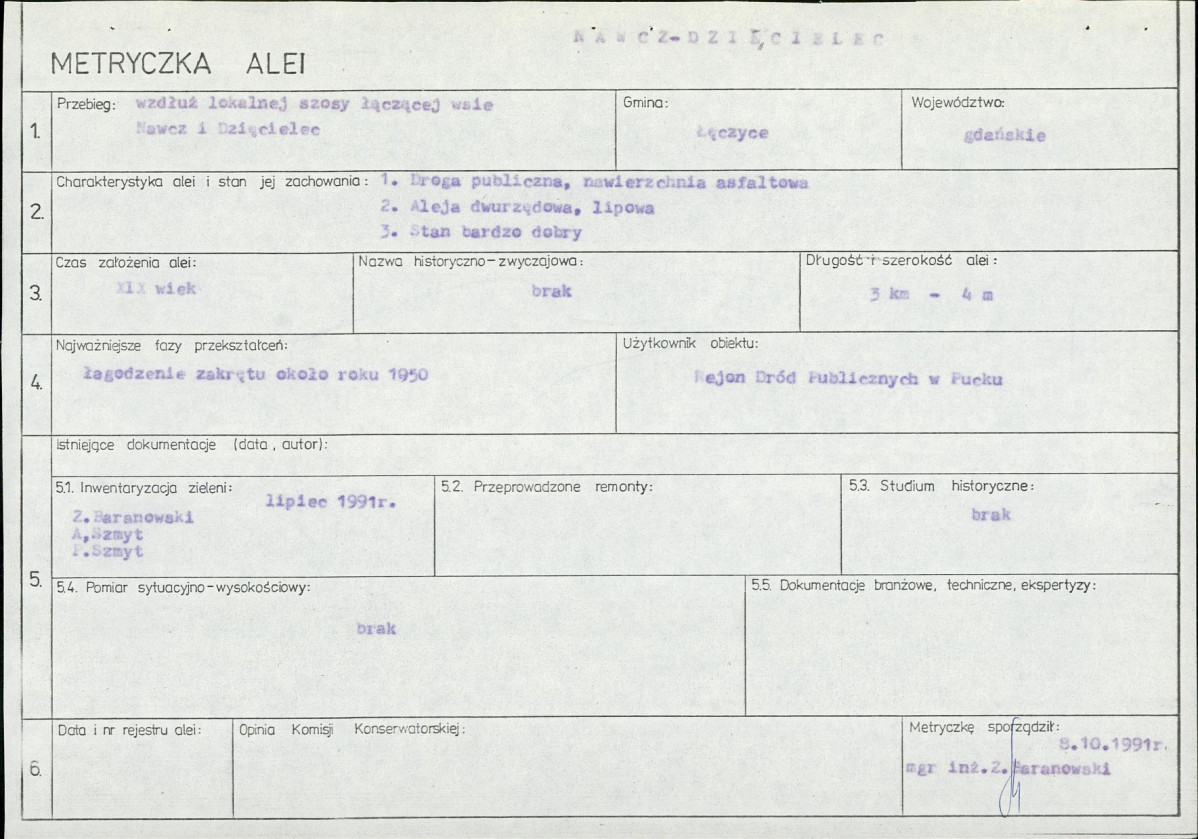 NAWCZ-DZIĘCIELEC
METRYCZKA ALEI
1.
Przebieg: wzdłuż lokalnej szosy łączącej wsie
Nawcz i Dzięcielec
Gmina:
Łęczyce
Województwo:
gdańskie
2.
Charakterystyka alei i stan jej zachowania: 1. Droga publiczna, nawierzchnia asfaltowa
2. Aleja dwurzędowa, lipowa
3. Stan bardzo dobry
3.
Czas założenia alei:
XIX wiek
Nazwa historyczno-zwyczajowa:
brak
Długość i szerokość alei:
3 km - 4 m
4.
Najważniejsze fazy przekształceń:
łagodzenie zakrętu około roku 1950
Użytkownik obiektu:
Rejon Dród Publicznych w Pucku
5.
Istniejące dokumentacje (data, autor):
5.1. Inwentaryzacja zieleni:
lipiec 1991r.
Z.Baranowski
A,Szmyt
P.Szmyt
5.2. Przeprowadzone remonty:
5.3. Studium historyczne:
brak
5.4. Pomiar sytuacyjno-wysokościowy:
brak
5.5. Dokumentacje branżowe, techniczne, ekspertyzy:
6.
Data i nr rejestru alei:
Opinia Komisji Konserwatorskiej:
Metryczkę sporządził:
8.10.1991r.
mgr inż.Z.Baranowski